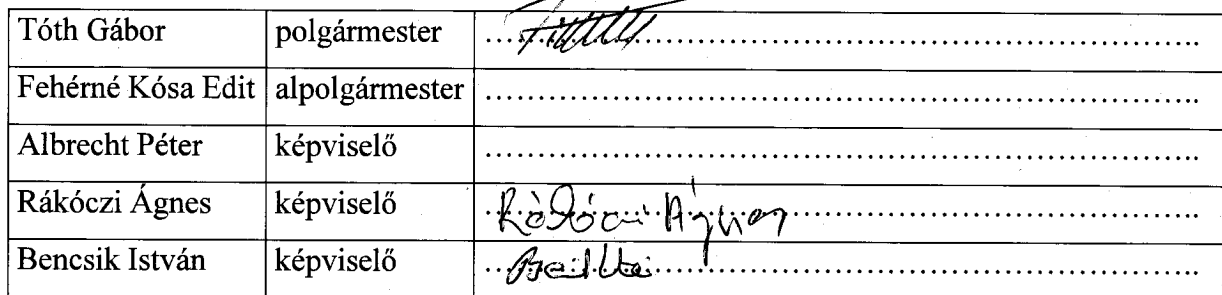 Tóth Gábor polgármester ................................................
Fehérné Kósa Edit alpolgármester ................................................
Albrecht Péter képviselő ................................................
Rákóczi Ágnes képviselő Rákóczi Ágnes ................................................
Bencsik István képviselő ................................................